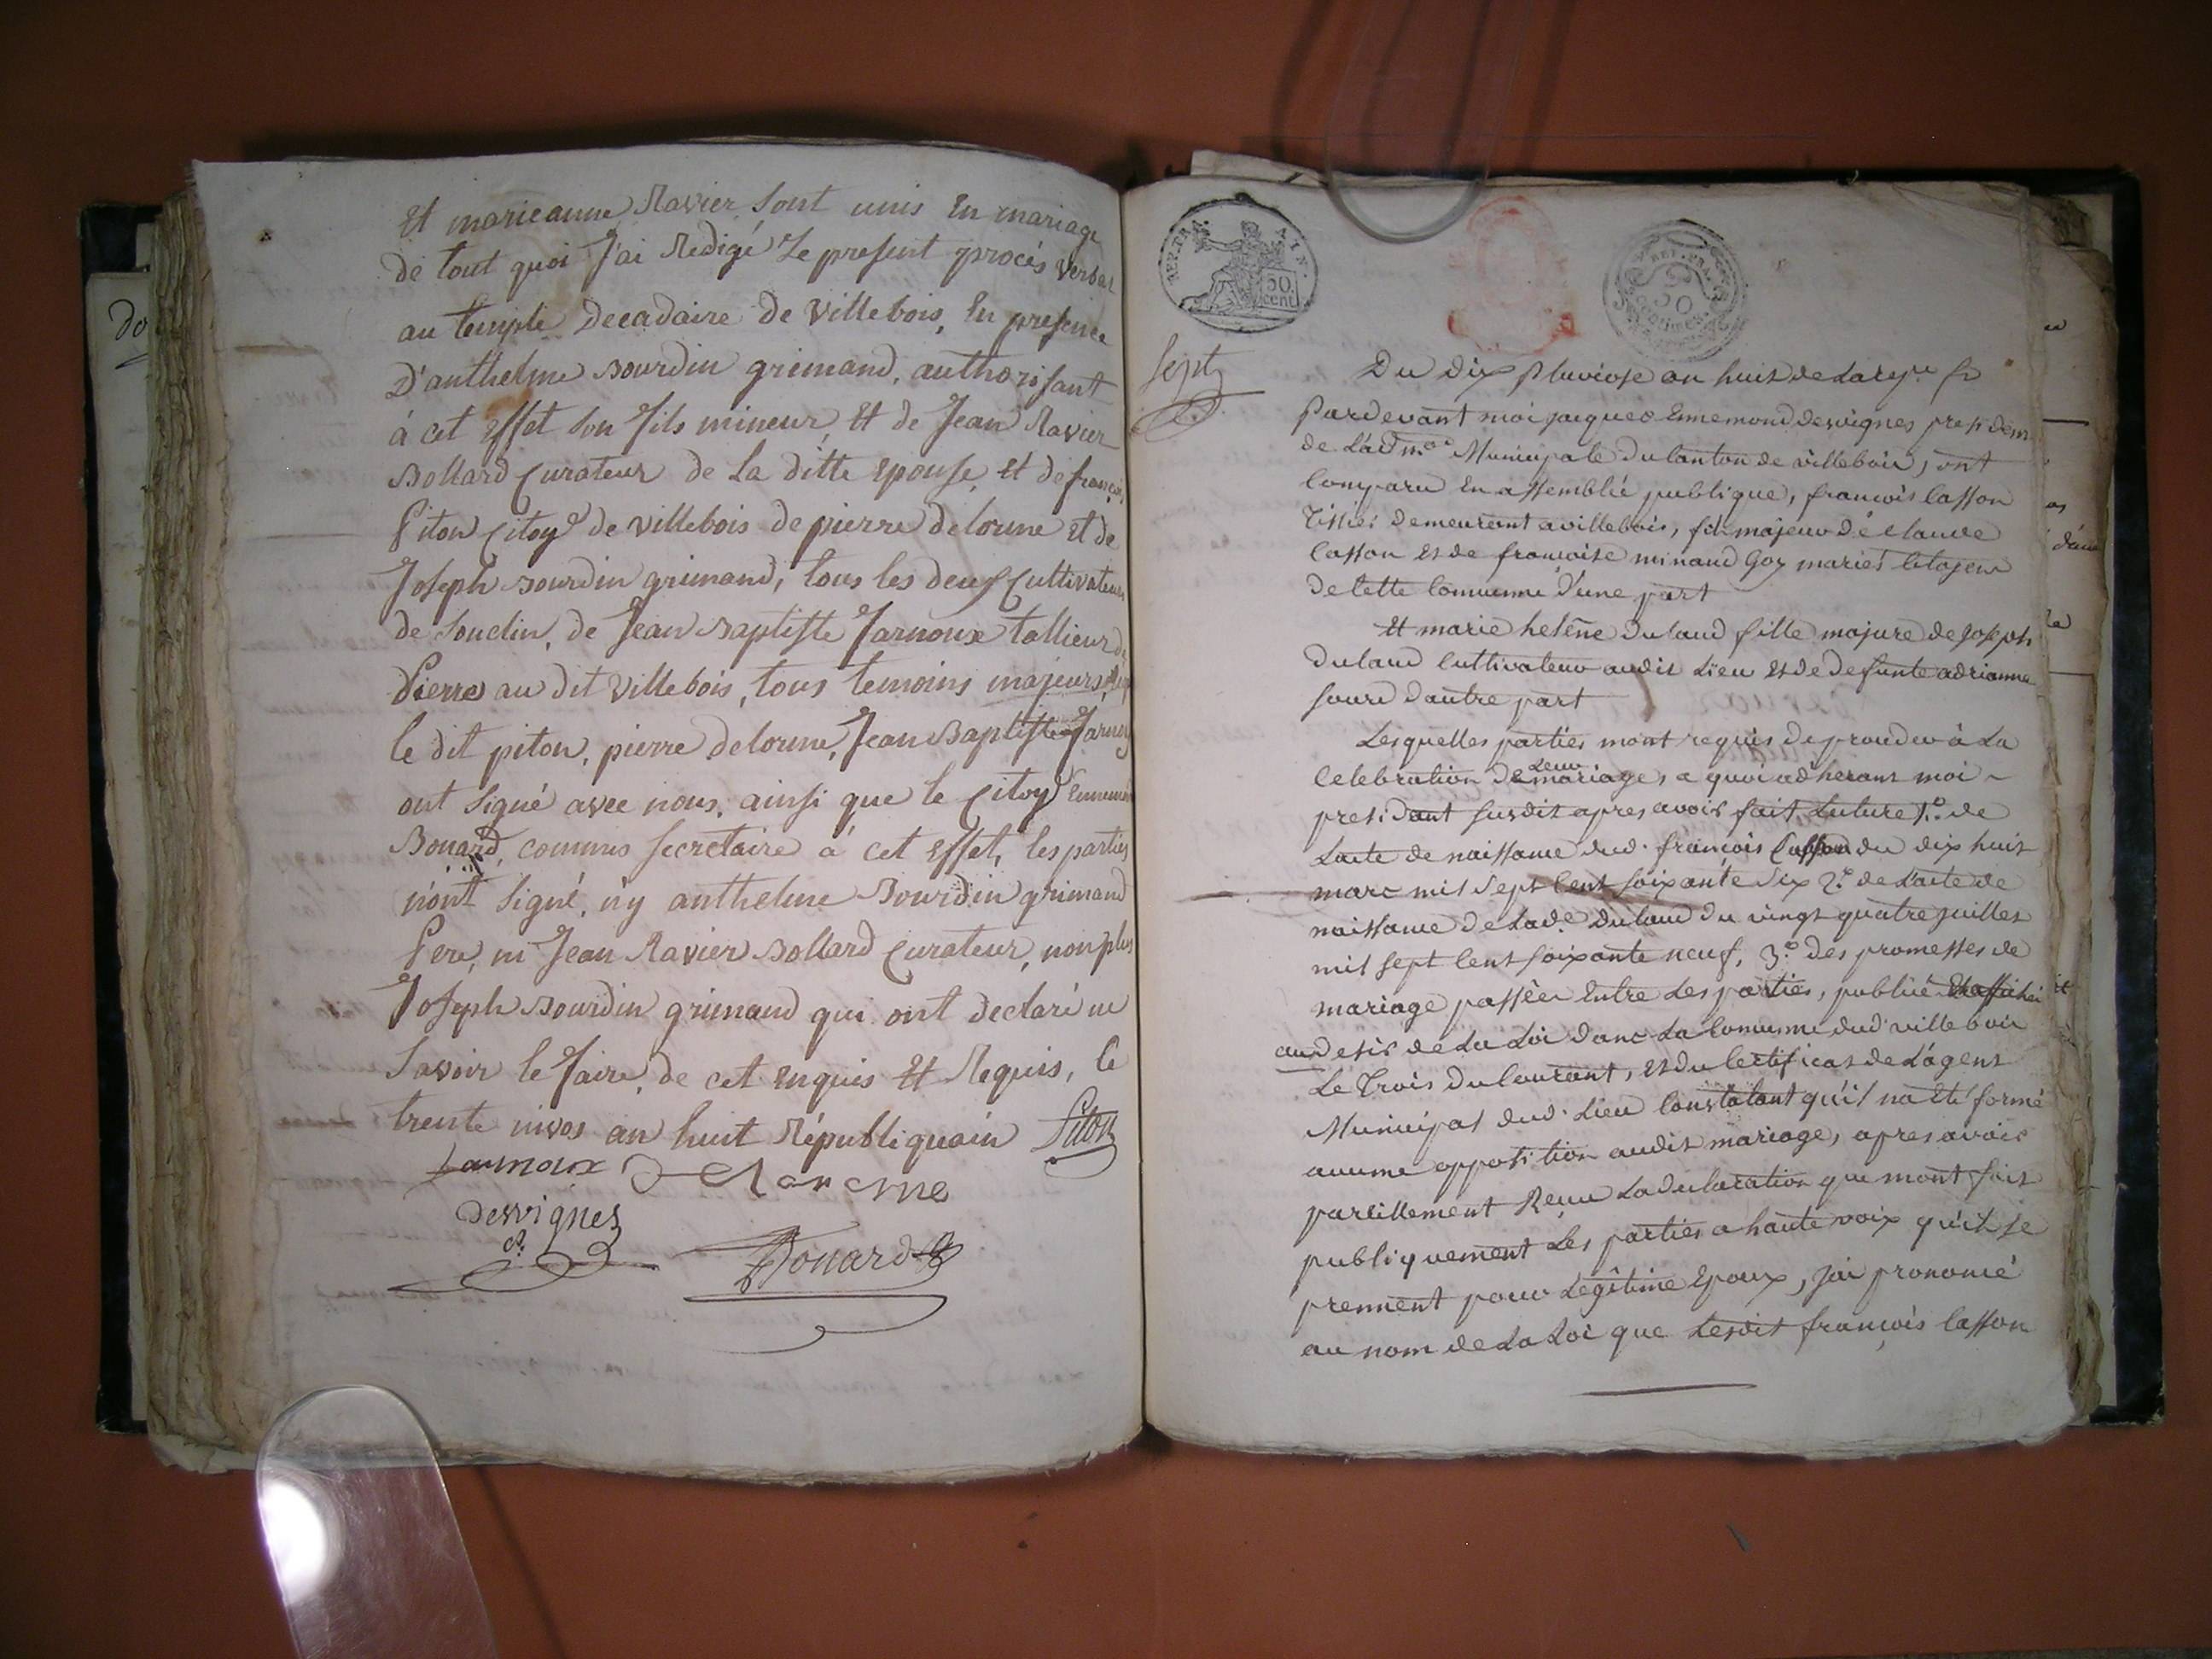 Et marieanne Ravier sont unis En mariage
de tout quoi J'ai Redigé Le present procés verbal
au temple Decadaire de Villebois, En presence
D'anthelme Bourdin grimand, authorisant
à cet Effet son fils mineur, Et de Jean Ravier
Bollard Curateur de La ditte Epouse, Et de françois
Piton Citoyn de villebois de pierre delorme Et de
Joseph Bourdin grimand, tous les deux Cultivateurs
de Souclin, de Jean Baptiste Jarnoux tallieur de
Pierre au dit Villebois, tous temoins majeurs,
le dit piton, pierre delorme, Jean Baptiste Jarnoux
ont signé avec nous, ainsi que le Citoyn Ennemond
Bonard, commis secretaire à cet Effet, les parties
n'ont signé, n'y anthelme Bourdin grimand
Pere, ni Jean Ravier Bollard Curateur, non plus
Joseph Bourdin grimand qui ont declaré ne
savoir le faire, de cet Enquis Et Requis, le
trente nivos an huit Républiquain Piton
Jarnoux Delorme
Desvignes
Bonard
REP. FRA. AIN.
50.
cent.
REP. FRA.
50
Centimes
Sept
Du dix pluviose an huit de La repue fr
Pardevant moi jacques Ennemond desvignes president
de L'adm.on Municipale du Canton de villebois, ont
Comparu En assemblée publique, francois Casson
tissier demeurant a villebois, fils majeur de claude
Casson et de francoise minand Goy mariés Citoyens
de Cette Commune d'une part
Et marie helene Duland fille majure de joseph
Duland Cultivateur audit Lieu et de defunte adrianne
sourd d'autre part
Lesquelles parties mont requis de proceder à La
Celebration de Leur mariage, a quoi adherant moi
president susdit apres avoir fait Lecture 1.o de
Lacte de naissance dud. francois Casson du dix huit
mars mil sept Cent soixante six 2.o de L'acte de
naissance de Lad.e Duland du vingt quatre juillet
mil sept Cent soixante neuf, 3.o des promesses de
mariage passées Entre Les parties, publié Et affiché
au desir de La Loi dans La Commune dud. villebois
Le trois du Courant, et du Certificat de L'agent
Municipal dud. Lieu Constatant qu'il na Eté formé
aucune opposition audit mariage, apres avoir
pareillement Reçue La declaration que mont fait
publiquement Les parties a haute voix qu'ils se
prennent pour Legitime Epoux, jai prononcé
au nom de La Loi que Lesdit francois Casson